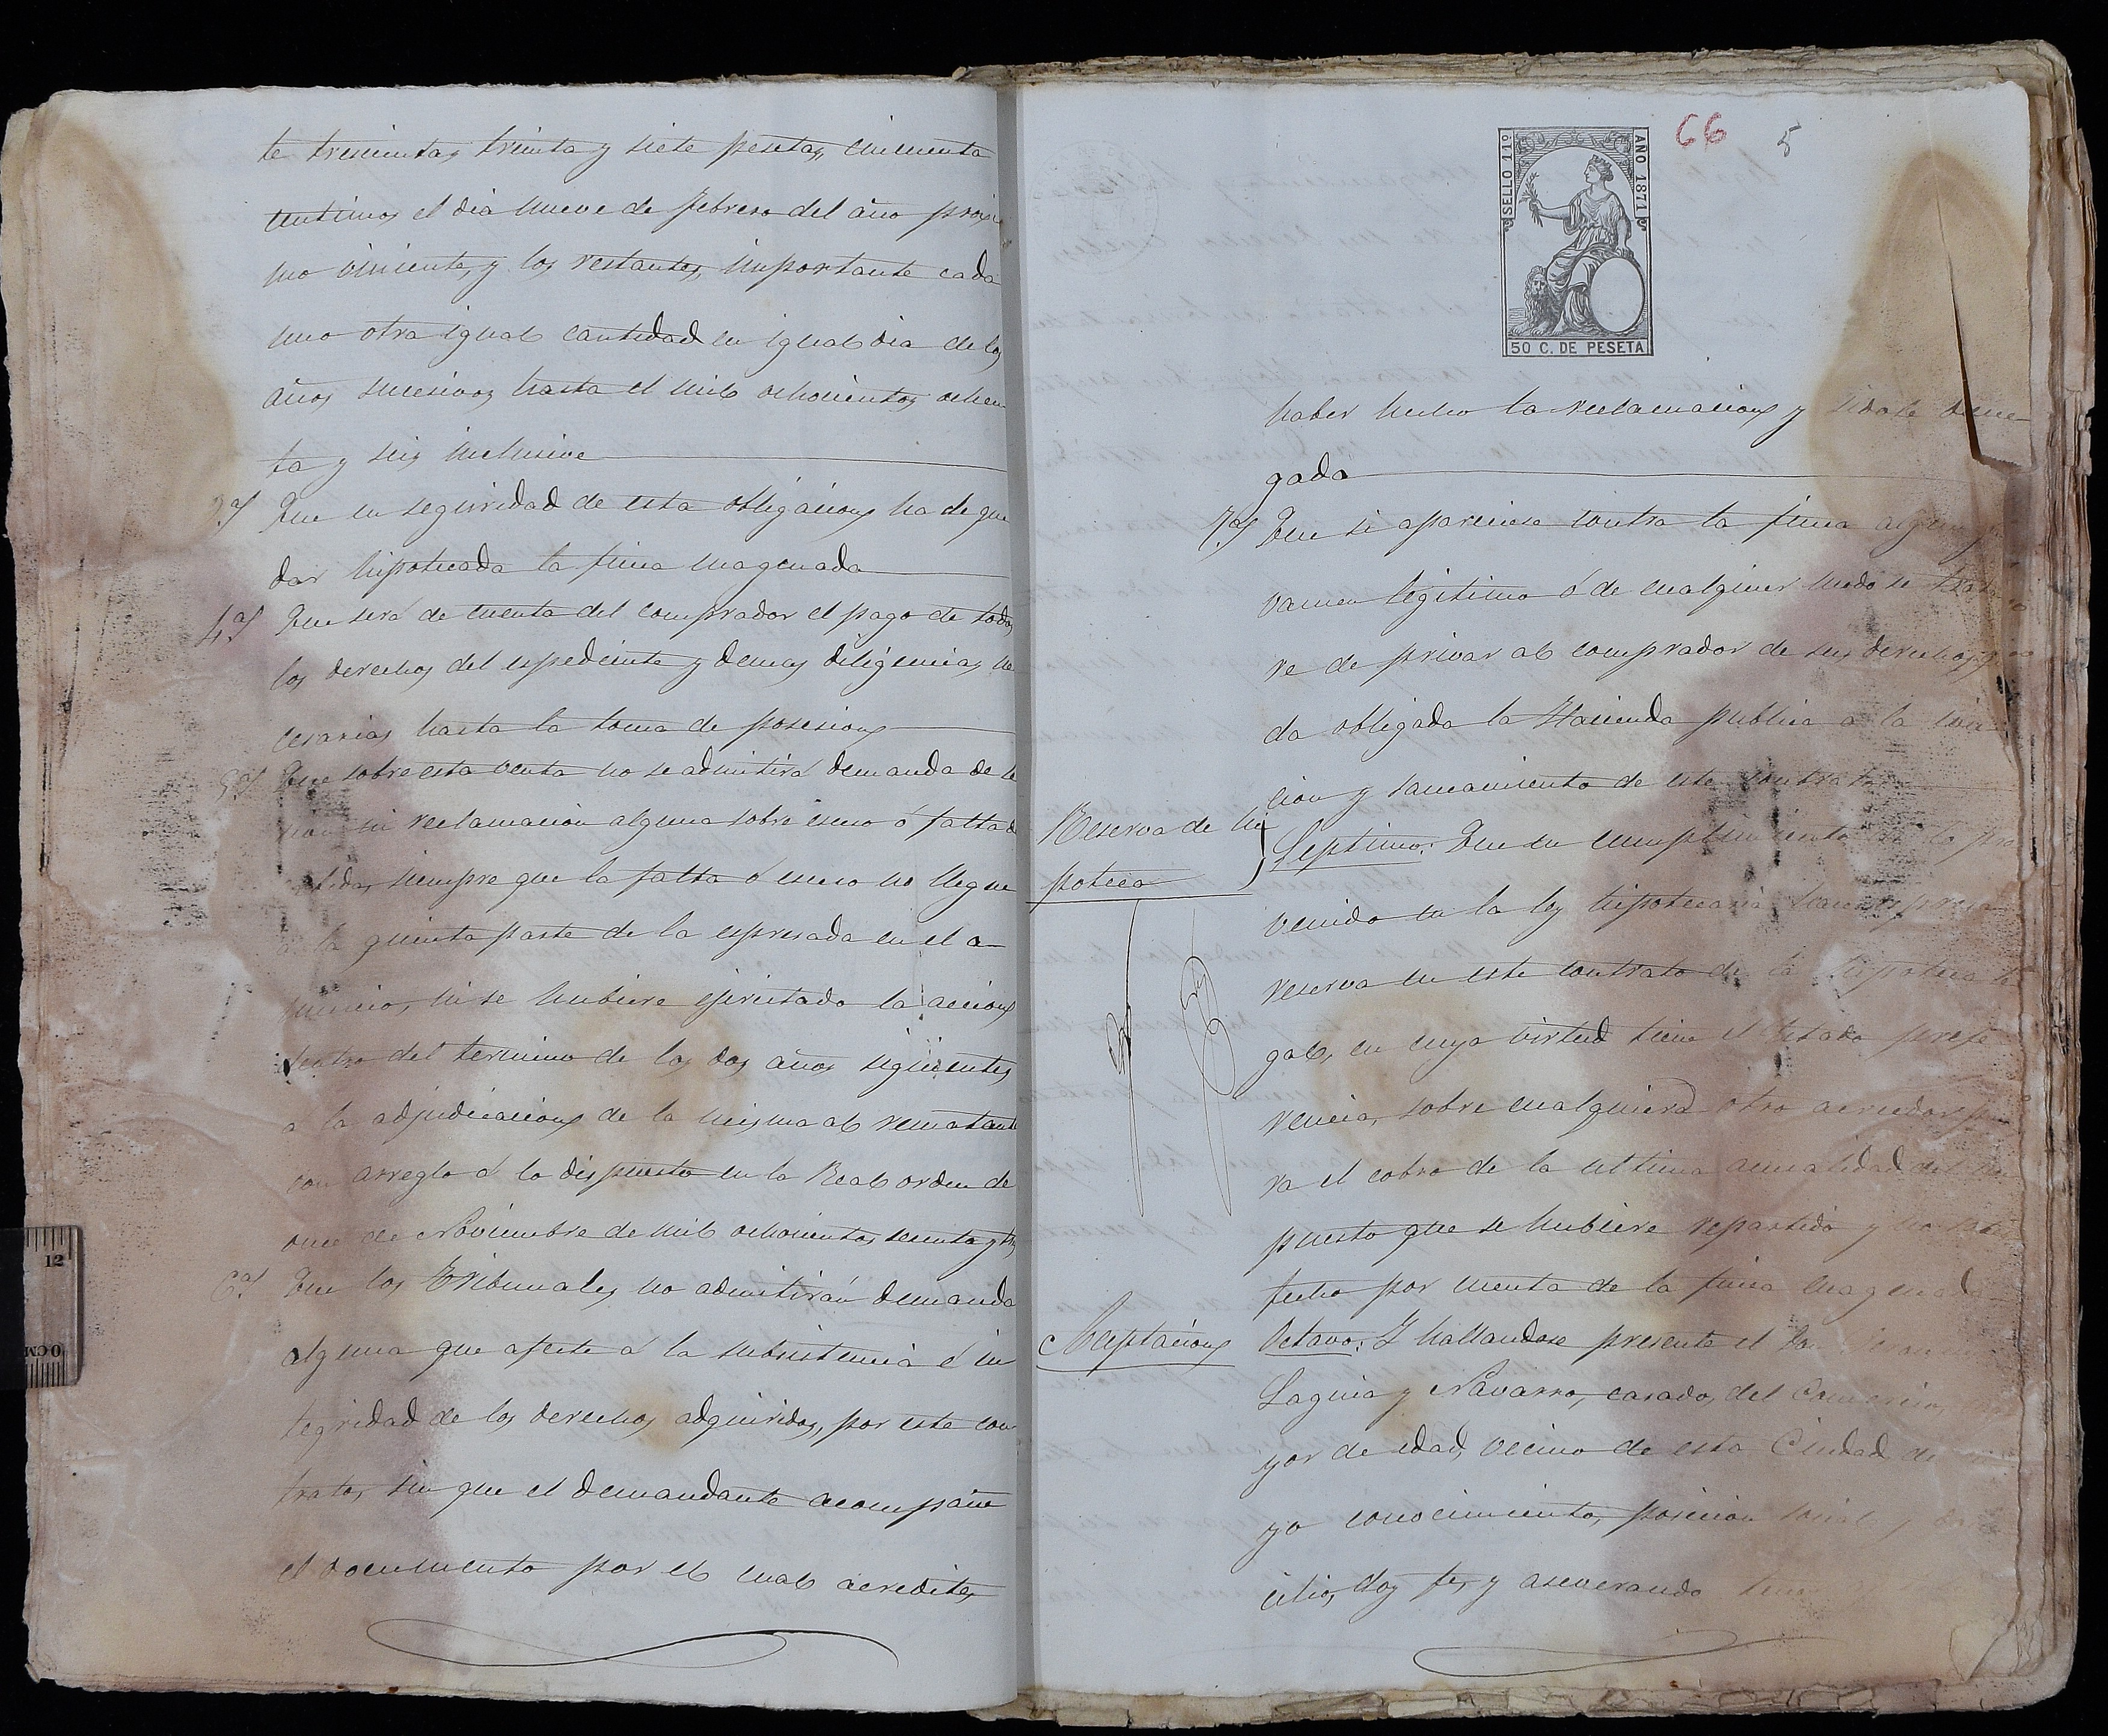 te trescientas treinta y siete pesetas, cincuenta
centimos el dia nueve de febrero del año prosi
mo viniente, y los restantes, importante cada
uno otra igual cantidad en igual dia de los
años sucesivos hasta el mil ochocientos ochen
ta y seis inclusive
3ª Que en seguridad de esta obligacion ha de que
dar hipotecada la finca enagenada
4ª Que será de cuenta del comprador el pago de todos
los derechos del espediente y demas diligencias ne
cesarias hasta la toma de posesion
5ª Que sobre esta venta no se admitirá demanda de le
sion ni reclamacion alguna sobre esceso ó falta de
cabida, siempre que la falta ó esceso no llegue
a la quinta parte de la espresada en el a-
nuncio, ni se hubiere ejercitado la accion
dentro del termino de los dos años siguientes
á la adjudicacion de la misma al rematante
con arreglo á lo dispuesto en la Real orden de
once de Noviembre de mil ochocientos sesenta y tres
6ª Que los Tribunales no admitirán demanda
alguna que afecte á la subsistencia é in
tegridad de los derechos adquiridos, por este con
trato, sin que el demandante acompañe
el documento por el cual acredite,
SELLO 11º
AÑO 1871
50 C. DE PESETA
66 5
haber hecho la reclamacion y sidole dene
gada
7ª Que si apareciese contra la finca algun
vamen legitimo ó de cualquier modo se trata
re de privar al comprador de sus derechos, que
da obligada la Hacienda publica á la evic
cion y saneamiento de este contrato
Reserva de hi
poteca
Septimo: Que en cumplimiento de lo pre
venido en la ley hipotecaria hace espresa
reserva en este contrato de la hipoteca le
gal, en cuya virtud tiene el Estado prefe
rencia, sobre cualquiera otro acreedor pa
ra el cobro de la ultima anualidad del im
puesto que se hubiere repartido y no satis
fecho por cuenta de la finca enagenada
Aceptacion
Octavo: Y hallandose presente el Don
Laguia y Navarro, casado, del Comercio,
yor de edad, vecino de esta Ciudad de
yo conocimiento, posicion social y
cilio, doy fe, y aseverando